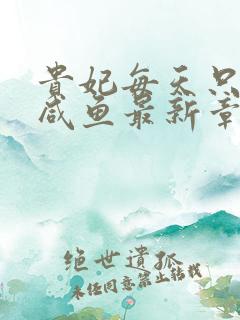 貴妃每天只
咸鱼最新章
绝世遗孤
未经同意禁止转载